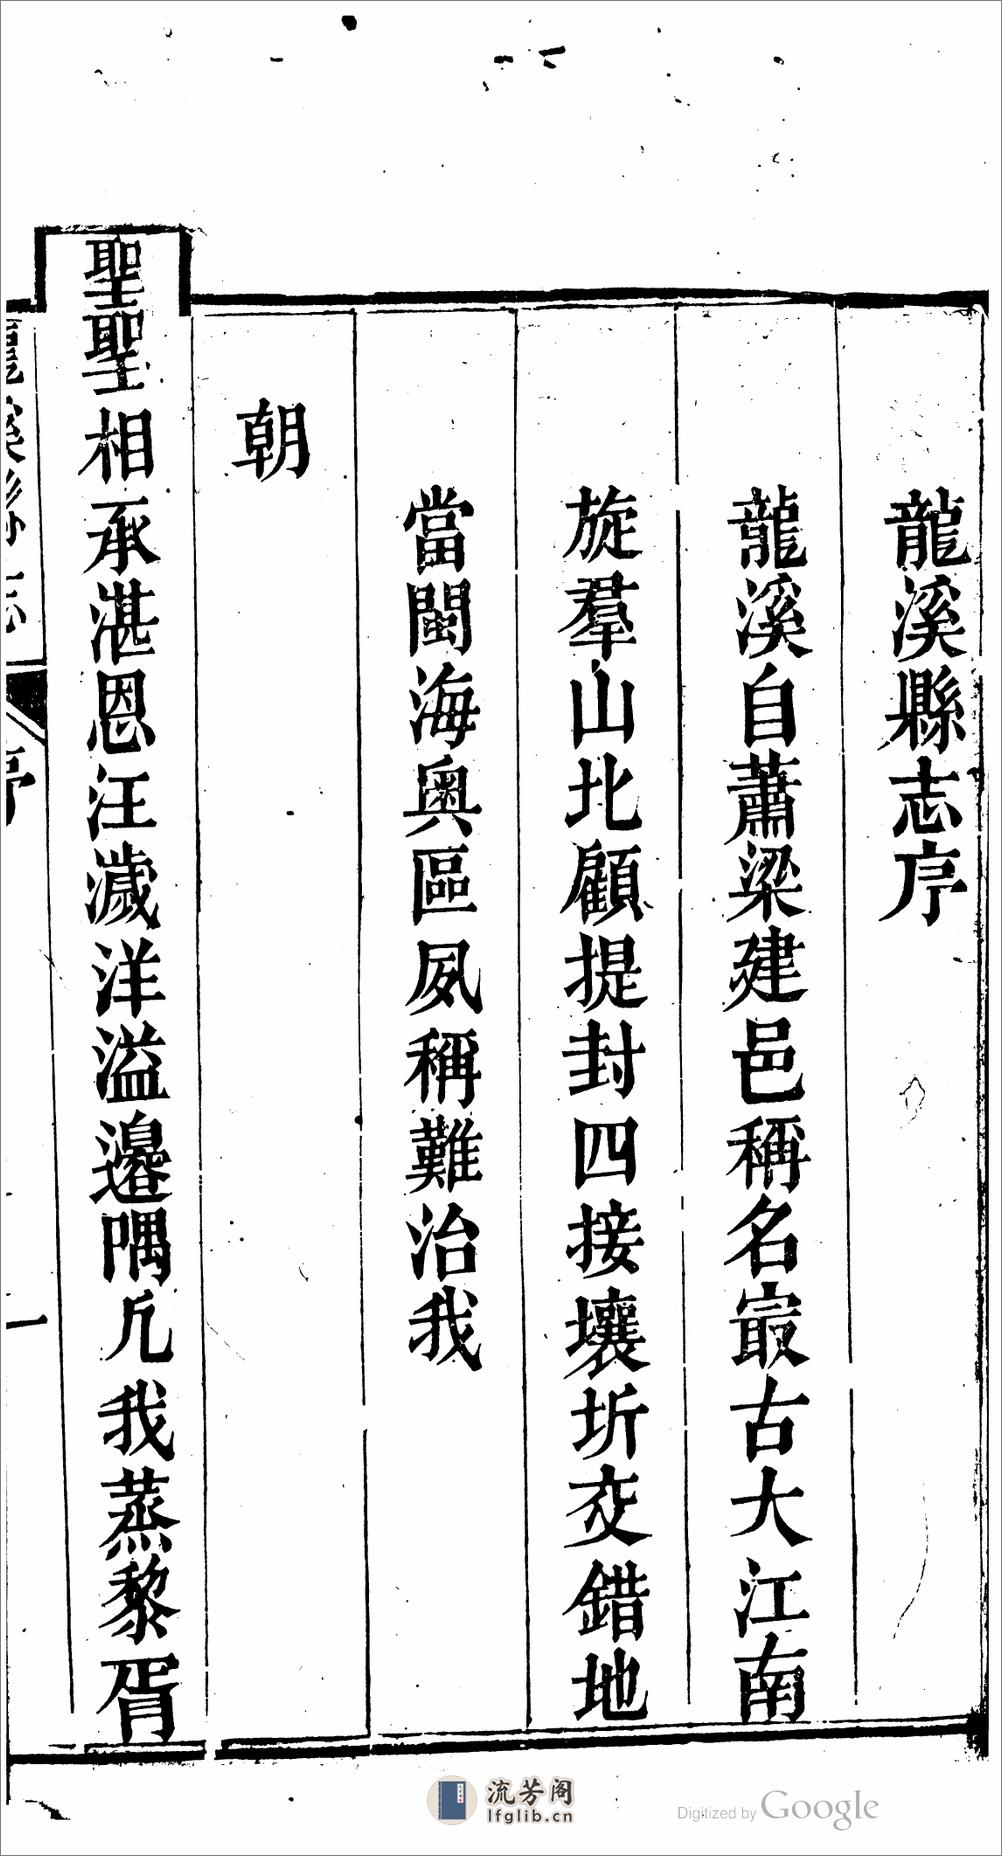 龍溪縣志序
龍溪自蕭梁建邑稱名㝡古大江南
旋羣山北顧提封四接壤圻交錯地
當閩海奥區夙稱難治我
朝
聖聖相承湛恩汪濊洋溢邉隅凢我蒸黎胥
龍溪縣志
序
一
流芳阁
lfglib.cn
Digitized by Google